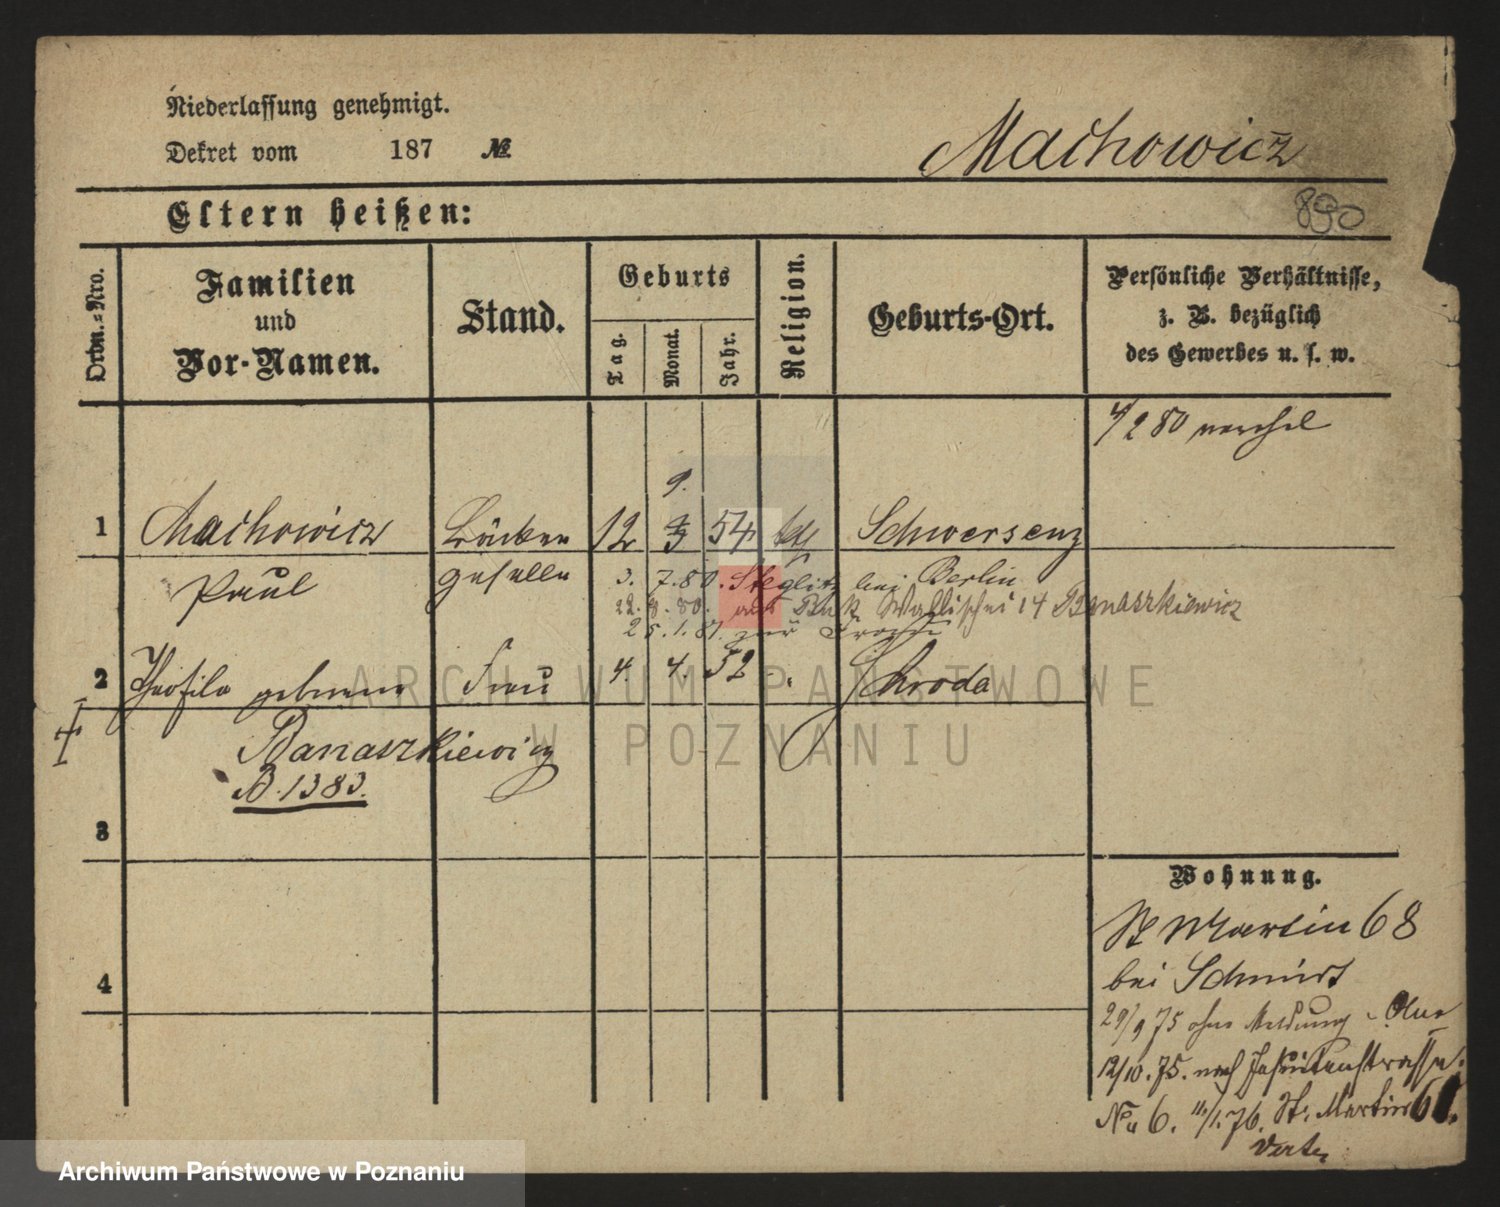 Niederlassung genehmigt.
Dekret vom 187 №
Machowicz
Eltern heißen:
890
Ordn.=Nro.
Familien
und
Vor-Namen.
Stand.
Geburts
Tag.
Monat.
Jahr.
Religion.
Geburts-Ort.
Persönliche Verhältnisse,
z. B. bezüglich
des Gewerbes u. s. w.
4/2 80
9.
1 Machowicz Bäcker 12 54 kth Schwersenz
Paul geselle 3. 7. 80. Steglitz bei Berlin
22. 8. 80. aus Buk Wallischei 14 Banaszkiewicz
25. 1. 81. zur
2 Theofila geborene Frau 4. 4. 52 " Schroda
Banaszkiewicz
B. 1383.
3
4
Wohnung.
St Martin 68
bei Schmidt
29/9 75 ohne Meldung
12/10. 75. nach Jesuitenstrasse
No 6. 11/1. 76. St. Martin
ARCHIWUM PAŃSTWOWE
W POZNANIU
Archiwum Państwowe w Poznaniu